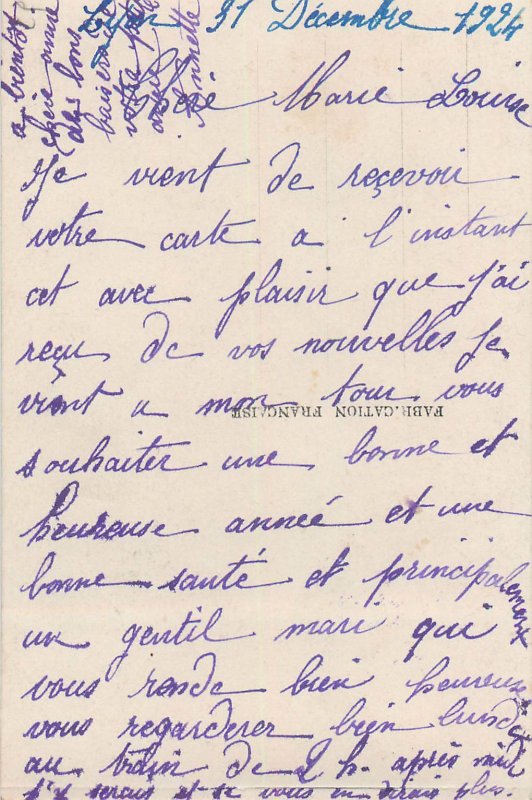 Lyon 31 Décembre 1924
Chère Marie Louise
Je vient de reçevoir
votre carte a l'instant
cet avec plaisir que j'ai
reçu de vos nouvelles Je
vient a mon tour vous
souhaiter une bonne et
heureuse année et une
bonne santé et principalement
un gentil mari qui
vous rende bien heureuse
vous regarderer bien lundi
au train de 2 h. après midi
j'y serais et je vous en dirais plus.
a bientôt
chère amie
des bons
baisers
votre
amie
FABRICATION FRANÇAISE